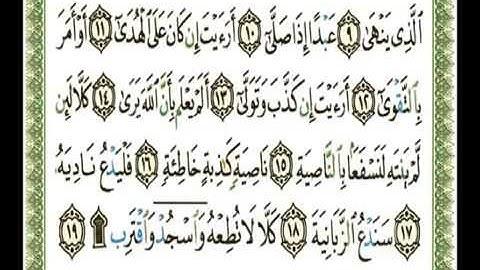 ٱلَّذِى يَنْهَىٰ ٩ عَبْدًا إِذَا صَلَّىٰٓ ١٠ أَرَءَيْتَ إِن كَانَ عَلَى ٱلْهُدَىٰٓ ١١ أَوْ أَمَرَ
بِٱلتَّقْوَىٰٓ ١٢ أَرَءَيْتَ إِن كَذَّبَ وَتَوَلَّىٰٓ ١٣ أَلَمْ يَعْلَم بِأَنَّ ٱللَّهَ يَرَىٰ ١٤ كَلَّا لَئِن
لَّمْ يَنتَهِ لَنَسْفَعًۢا بِٱلنَّاصِيَةِ ١٥ نَاصِيَةٍ كَٰذِبَةٍ خَاطِئَةٍ ١٦ فَلْيَدْعُ نَادِيَهُۥ
١٧ سَنَدْعُ ٱلزَّبَانِيَةَ ١٨ كَلَّا لَا تُطِعْهُ وَٱسْجُدْ وَٱقْتَرِب ۩ ١٩